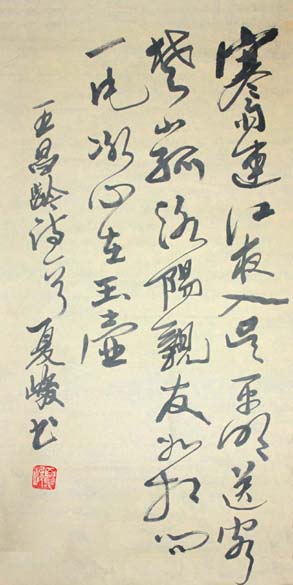 寒雨連江夜入吴平明送客
楚山孤洛陽親友如相问
一片冰心在玉壶
王昌龄诗一首 夏峻书